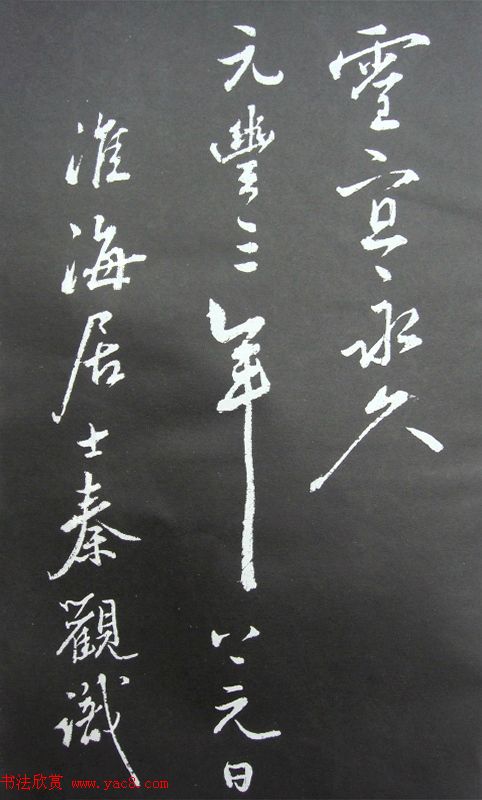 永久
元豐三年上元日
淮海居士秦觀識
书法欣赏 www.yac8.com